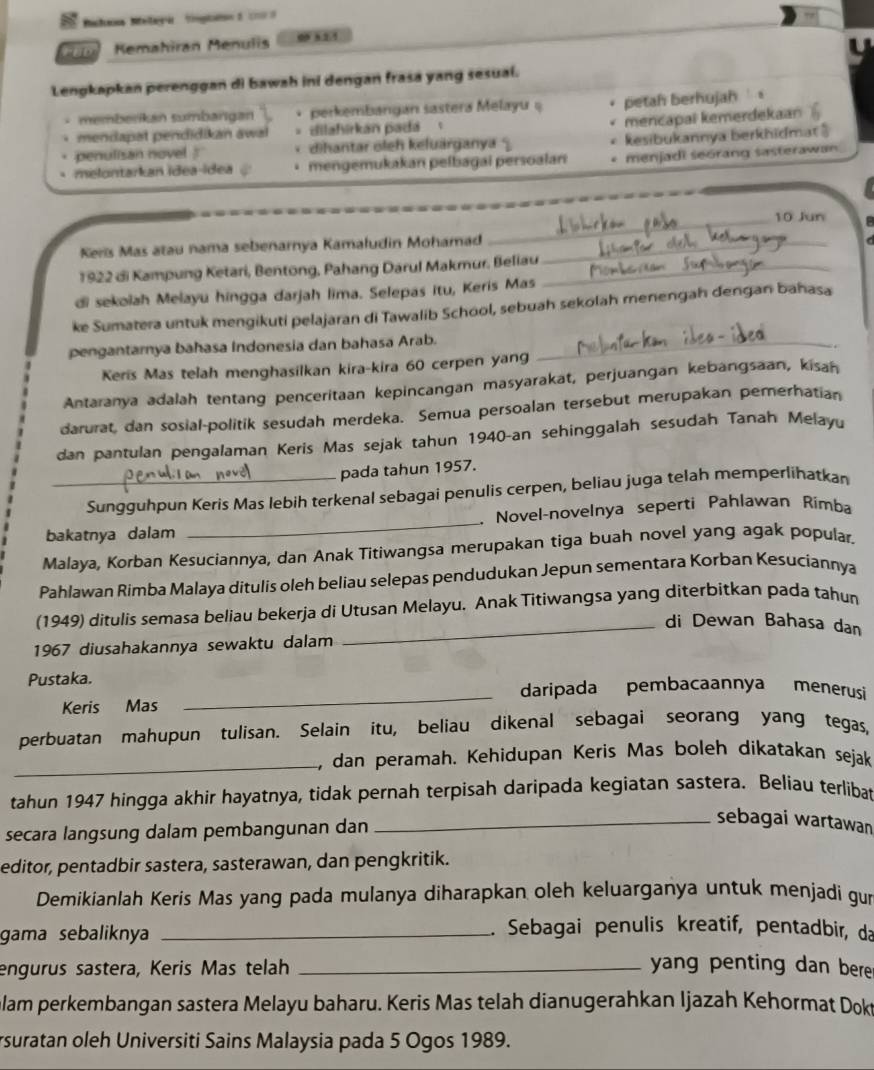 Bahasa Melayu Tingkatan
Kemahiran Menulis
Lengkapkan perenggan di bawah ini dengan frasa yang sesuai.
• memberikan sumbangan • perkembangan sastera Melayu • petah berhujah
• mendapat pendidikan awal • dilahirkan pada • mencapai kemerdekaan
• penulisan novel • dihantar oleh keluarganya • kesibukannya berkhidmat
• melontarkan idea-idea • mengemukakan pelbagai persoalan • menjadi seorang sasterawan
Keris Mas atau nama sebenarnya Kamaludin Mohamad dilahirkan pada 10 Jun
1922 di Kampung Ketari, Bentong, Pahang Darul Makmur. Beliau dihantar oleh keluarganya
di sekolah Melayu hingga darjah lima. Selepas itu, Keris Mas memberikan sumbangan
ke Sumatera untuk mengikuti pelajaran di Tawalib School, sebuah sekolah menengah dengan bahasa
pengantarnya bahasa Indonesia dan bahasa Arab.
Keris Mas telah menghasilkan kira-kira 60 cerpen yang melontarkan idea-idea.
Antaranya adalah tentang penceritaan kepincangan masyarakat, perjuangan kebangsaan, kisah
darurat, dan sosial-politik sesudah merdeka. Semua persoalan tersebut merupakan pemerhatian
dan pantulan pengalaman Keris Mas sejak tahun 1940-an sehinggalah sesudah Tanah Melayu
penulisan novel pada tahun 1957.
Sungguhpun Keris Mas lebih terkenal sebagai penulis cerpen, beliau juga telah memperlihatkan
bakatnya dalam ______. Novel-novelnya seperti Pahlawan Rimba
Malaya, Korban Kesuciannya, dan Anak Titiwangsa merupakan tiga buah novel yang agak popular.
Pahlawan Rimba Malaya ditulis oleh beliau selepas pendudukan Jepun sementara Korban Kesuciannya
(1949) ditulis semasa beliau bekerja di Utusan Melayu. Anak Titiwangsa yang diterbitkan pada tahun
1967 diusahakannya sewaktu dalam ______ di Dewan Bahasa dan
Pustaka.
Keris Mas ______ daripada pembacaannya menerusi
perbuatan mahupun tulisan. Selain itu, beliau dikenal sebagai seorang yang tegas,
______, dan peramah. Kehidupan Keris Mas boleh dikatakan sejak
tahun 1947 hingga akhir hayatnya, tidak pernah terpisah daripada kegiatan sastera. Beliau terlibat
secara langsung dalam pembangunan dan ______ sebagai wartawan
editor, pentadbir sastera, sasterawan, dan pengkritik.
Demikianlah Keris Mas yang pada mulanya diharapkan oleh keluarganya untuk menjadi gur
gama sebaliknya ______. Sebagai penulis kreatif, pentadbir, da
engurus sastera, Keris Mas telah ______ yang penting dan bere
lam perkembangan sastera Melayu baharu. Keris Mas telah dianugerahkan Ijazah Kehormat Dokt
rsuratan oleh Universiti Sains Malaysia pada 5 Ogos 1989.